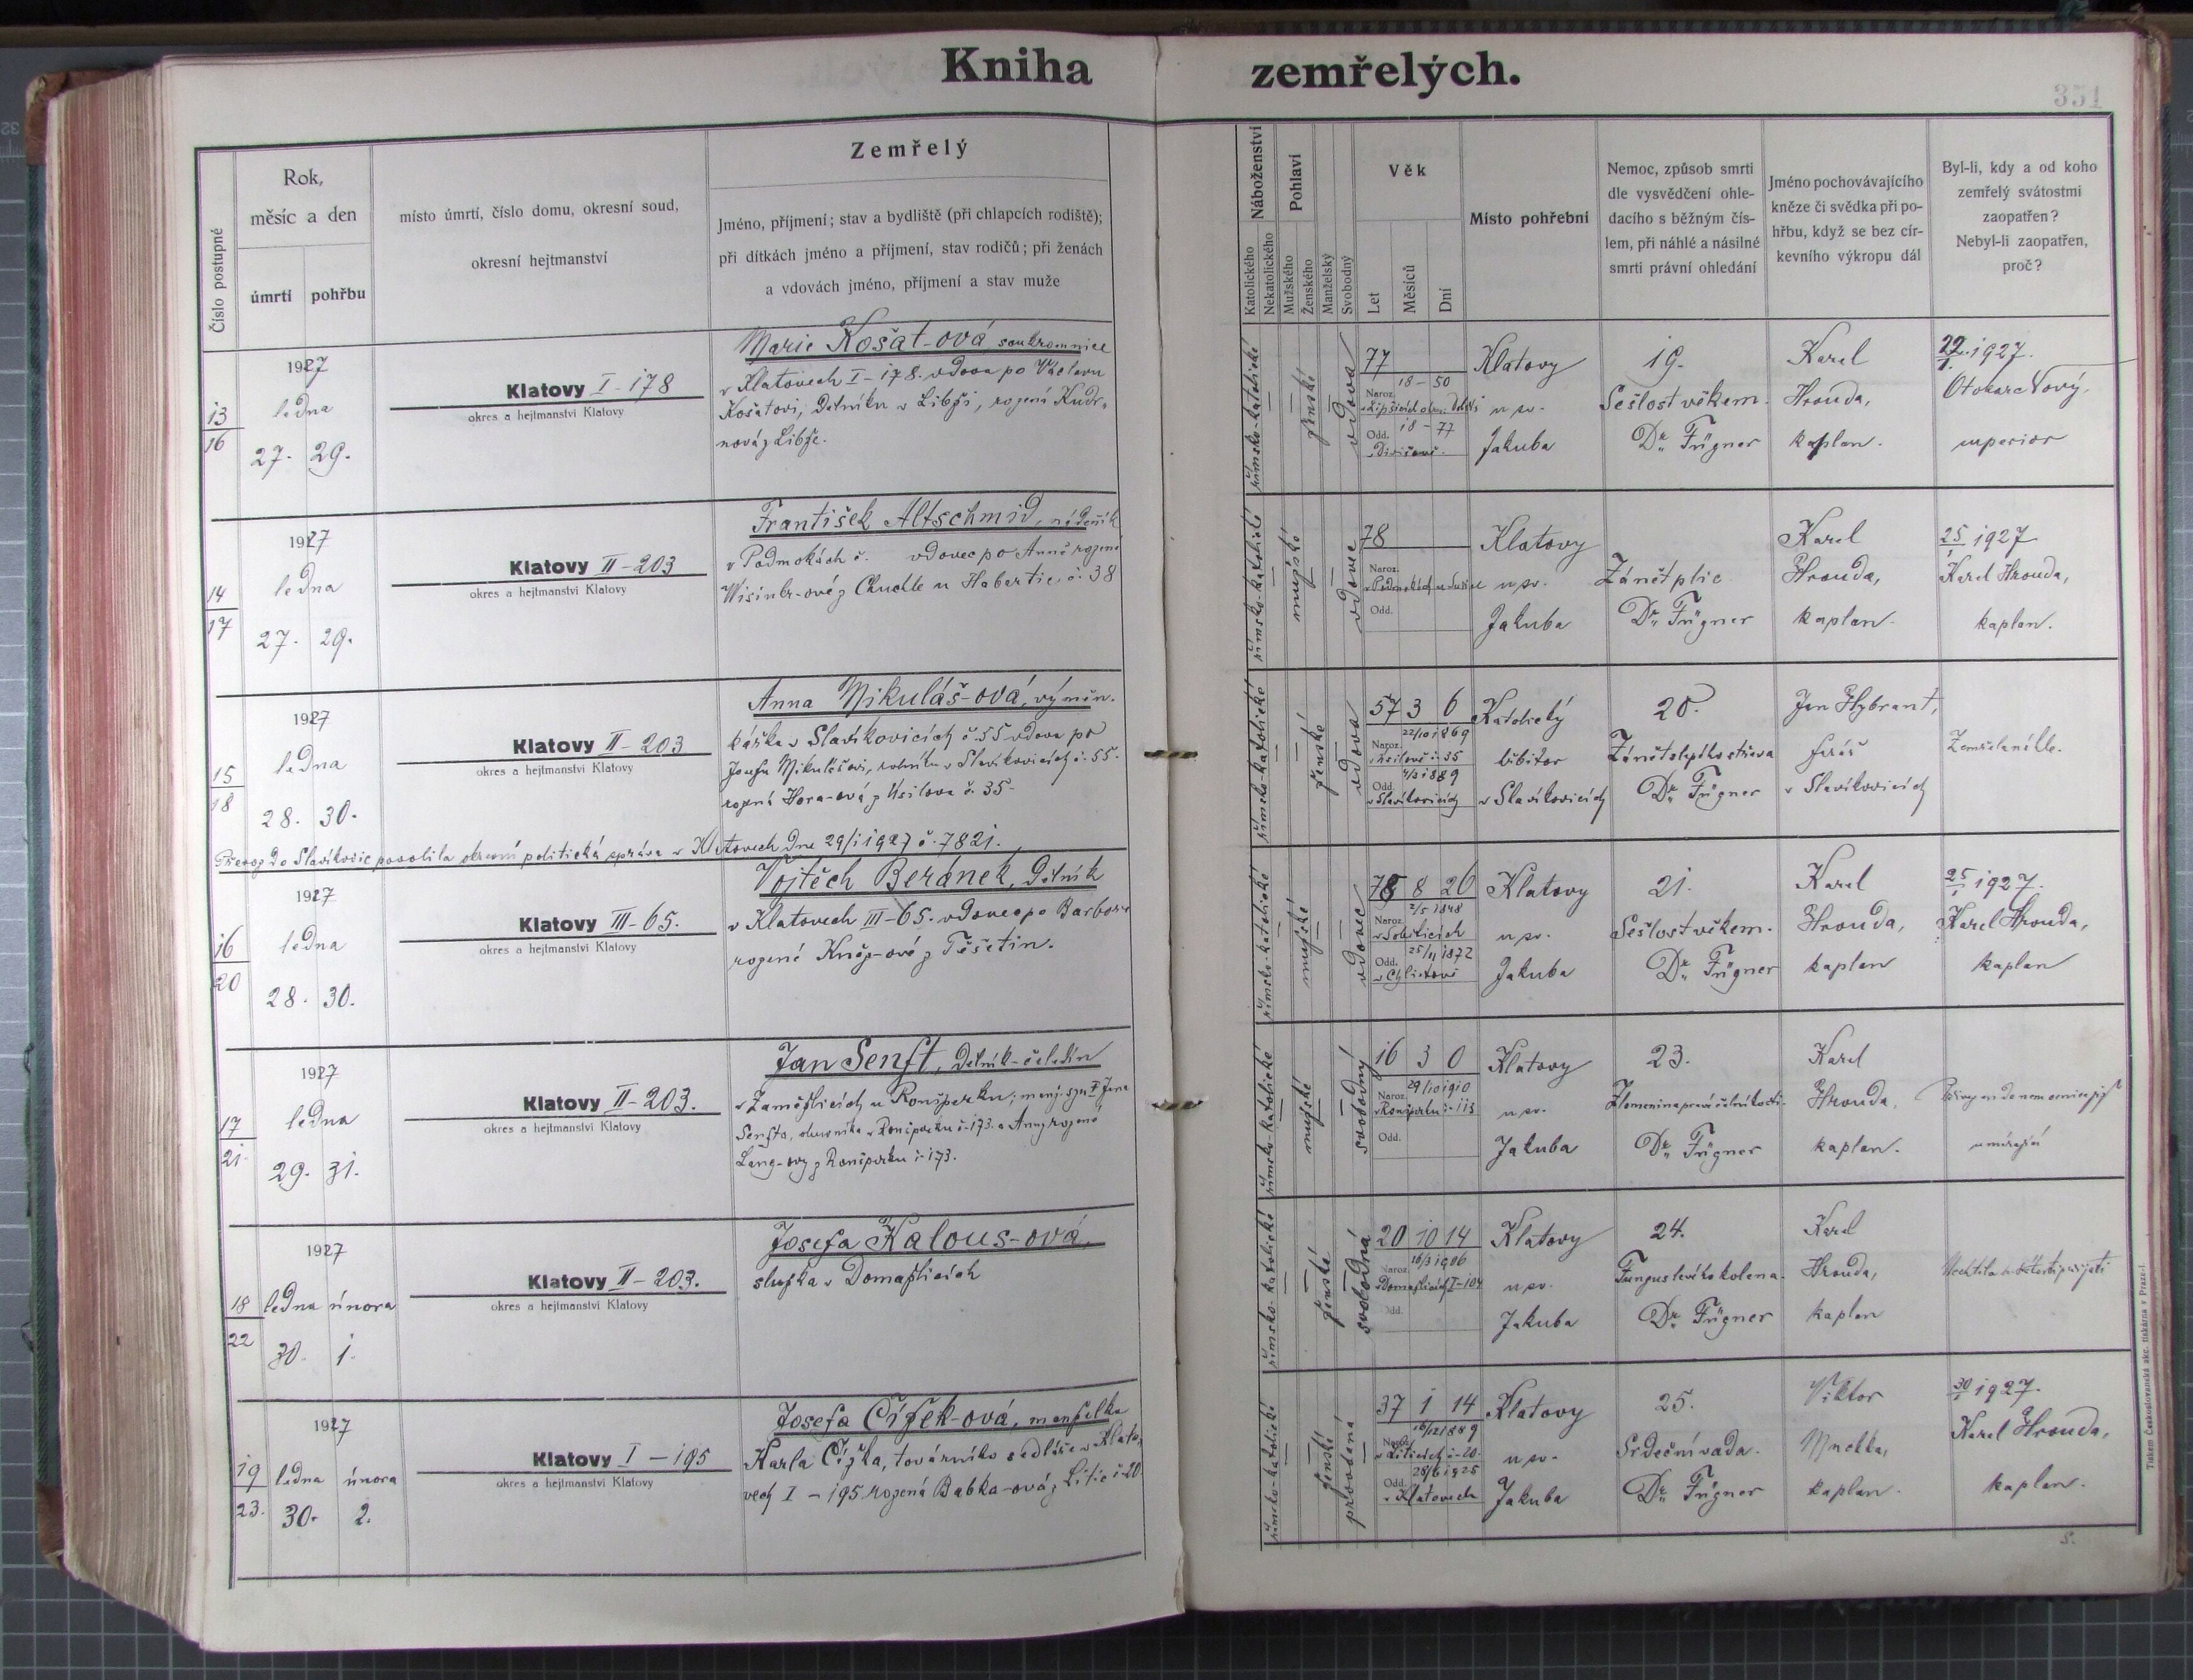 Kniha zemřelých.
351
Číslo postupné
Rok,
měsíc a den
úmrtí
pohřbu
místo úmrtí, číslo domu, okresní soud,
okresní hejtmanství
Zemřelý
Jméno, příjmení; stav a bydliště (při chlapcích rodiště);
při dítkách jméno a příjmení, stav rodičů; při ženách
a vdovách jméno, příjmení a stav muže
Náboženství
Katolického
Nekatolického
Pohlaví
Mužského
Ženského
Manželský
Svobodný
Věk
Let
Měsíců
Dní
Místo pohřební
Nemoc, způsob smrti
dle vysvědčení ohle-
dacího s běžným čís-
lem, při náhlé a násilné
smrti právní ohledání
Jméno pochovávajícího
kněze či svědka při po-
hřbu, když se bez cír-
kevního výkropu dál
Byl-li, kdy a od koho
zemřelý svátostmi
zaopatřen?
Nebyl-li zaopatřen,
proč?
13
16
1927
ledna
27. 29.
Klatovy I-178
okres a hejtmanství Klatovy
Marie Košat-ová, soukromnice
v Klatovech I-178. vdova po Václavu
Košatovi, dělníku v Libži, rozená Kudr-
nová z Libže.
římsko-katolické
ženské
vdova
77
Naroz. 18-50
Odd. 18-77
Klatovy
u sv.
Jakuba
19.
Sešlost věkem.
Dr. Fügner
Karel
Hrouda,
kaplan.
22/1. 1927.
Otokar Nový,
superior
14
17
1927
ledna
27. 29.
Klatovy II-203
okres a hejtmanství Klatovy
František Altschmid, nádeník
v Podmokách č. vdovec po Anně rozené
z Chuchle u Habartic č. 38
římsko-katolické
mužské
vdovec
78
Naroz.
Odd.
Klatovy
u sv.
Jakuba
Zánět plic
Dr. Fügner
Karel
Hrouda,
kaplan.
25/1 1927
Karel Hrouda,
kaplan.
15
18
1927
ledna
28. 30.
Klatovy II-203
okres a hejtmanství Klatovy
Anna Mikuláš-ová, výměn.
kářka v Slavíkovicích č. 55 vdova po
Josefu Mikulášovi, rolníku v Slavíkovicích č. 55.
rozená Hora-ová z Úsilova č. 35.
římsko-katolické
ženské
vdova
57 3 6
22/10 1869
Naroz. v Úsilově č. 35
1889
Odd. v Slavíkovicích
Katolický
hřbitov
v Slavíkovicích
20.
Zánět slepého střeva
Dr. Fügner
Jan Hybrant,
farář
v Slavíkovicích
Zemřela náhle.
Převoz do Slavíkovic povolila okresní politická správa v Klatovech dne 29/1 1927 č. 7821.
16
20
1927
ledna
28. 30.
Klatovy III-65.
okres a hejtmanství Klatovy
Vojtěch Beránek, dělník
v Klatovech III-65. vdovec po Barboře
rozené Kněz-ové z Těšetin.
římsko-katolické
mužské
vdovec
78 8 26
2/5 1848
Naroz.
25/11 1872
Odd. v Chlistově
Klatovy
u sv.
Jakuba
21.
Sešlost věkem.
Dr. Fügner
Karel
Hrouda,
kaplan
25/1 1927.
Karel Hrouda,
kaplan
17
21.
1927
ledna
29. 31.
Klatovy II-203.
okres a hejtmanství Klatovy
Jan Senft, dělník-čeledín
v Zamžlicích u Ronšperku; manž. syn † Jana
Senfta, v Ronšperku č. 173. a Anny rozené
Lang-ovy z Ronšperku č. 173.
římsko-katolické
mužské
svobodný
16 3 0
29/10 1910
Naroz. v Ronšperku č. 113
Odd.
Klatovy
u sv.
Jakuba
23.
Zlomenina pravé čelní kosti.
Dr. Fügner
Karel
Hrouda,
kaplan.
Přivezen do nemocnice již
umírající
18
22
1927
ledna února
30. 1.
Klatovy II-203.
okres a hejtmanství Klatovy
Josefa Kalous-ová,
služka v Domažlicích
římsko-katolické
ženské
svobodná
20 10 14
16/3 1906
Naroz. v Domažlicích I-104
Odd.
Klatovy
u sv.
Jakuba
24.
Fungus levého kolena.
Dr. Fügner
Karel
Hrouda,
kaplan
Nechtěla svátosti přijati
19
23.
1927
ledna února
30. 2.
Klatovy I-195
okres a hejtmanství Klatovy
Josefa Čížek-ová, manželka
Karla Čížka, továrního sedláře v Klato-
vech I-195 rozená Babka-ová z Litic č. 20.
římsko-katolické
ženské
provdaná
37 1 14
16/12 1889
Naroz. v Liticích č. 20.
28/6 1925
Odd. v Klatovech
Klatovy
u sv.
Jakuba
25.
Srdeční vada.
Dr. Fügner
Viktor
kaplan.
30/1 1927.
Karel Hrouda,
kaplan.
Tiskem Českoslovanská akc. tiskárna v Praze-I
S.